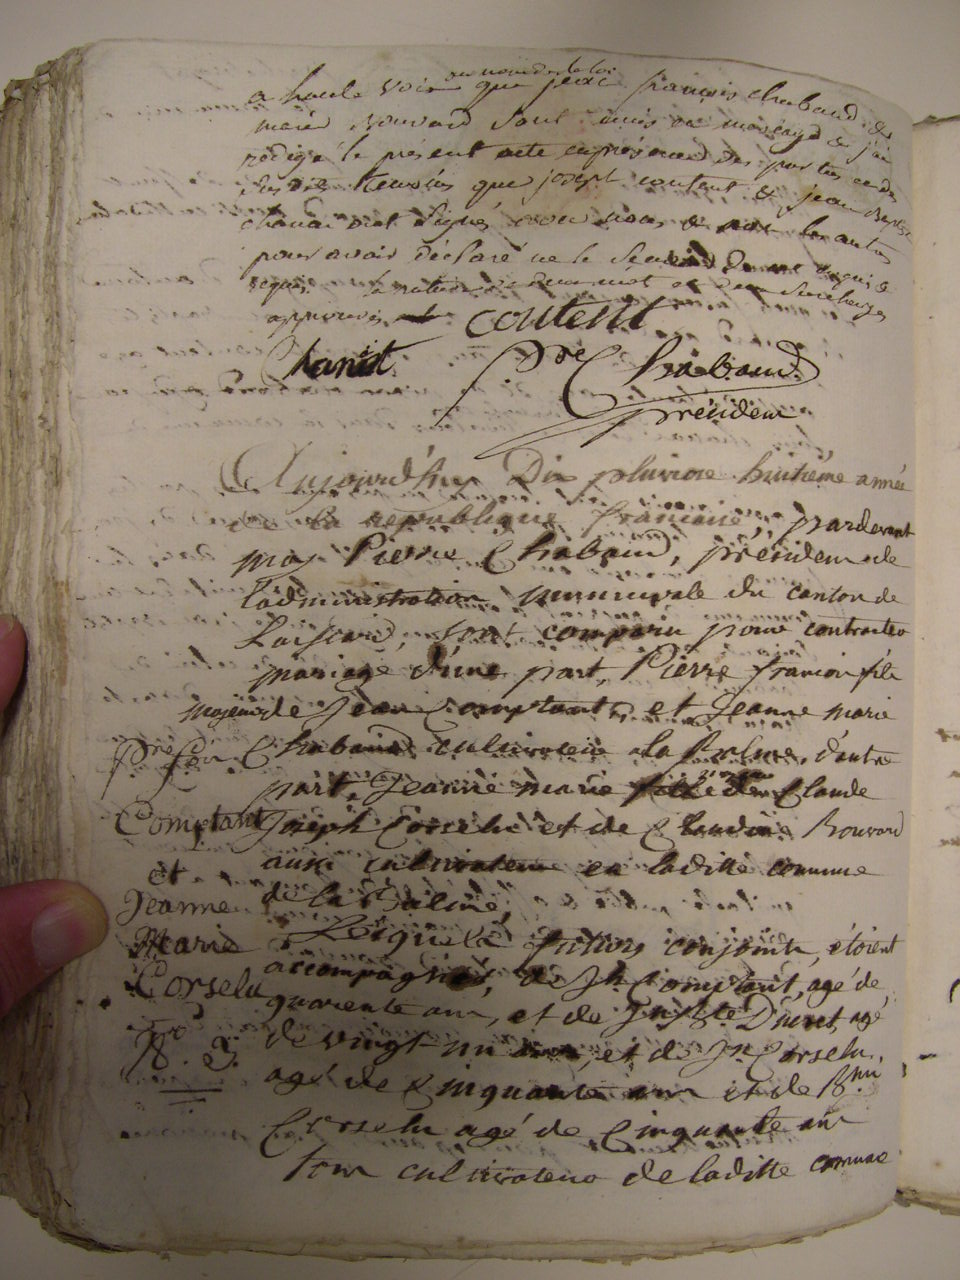 au nom de la loi
a haute voix que jean françois chabaud &
marie Rouvard sont unis en mariage & j'ai
redigé le présent acte en présence des parties et des
témoins que joseph contant & jean Baptiste
chanai ont signés avec nous & non les autres
pour avoir déclaré ne le scavoir de ce enquis &
requis. la rature de deux mot et deux surcharges
approuvés
content
Chanit
Pre Chabaud
président
Aujourd'huy Dix pluviose huitième année
de la république française, pardevant
moy Pierre Chabaud, président de
l'administration municipale du canton de
sont comparu pour contracter
mariage d'une part, Pierre françois fils
majeur de Jean Comptant, et Jeanne marie
Chabaud cultivateur a La Balme, d'autre
part, Jeanne marie fille de Claude
Joseph Corselu et de Claudine Rouvard
aussi cultivateur en laditte commune
de la Balme,
Lesquels futurs conjoints, étoient
accompagnés, de Jh Comptant, agé de
quarente ans, et de Ducret, agé
de vingt un ans, et de Jn Corselu,
agé de Cinquante ans et de
Corselu agé de Cinquante ans
tous cultivateurs de laditte commune
Pre
Comptant
et
Jeanne
Marie
Corselu